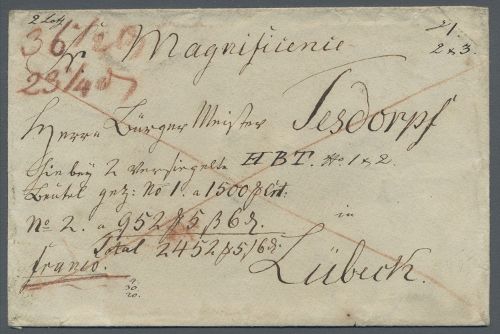 2 Loth
Sr Magnificenie
21.
2 & 3.
Herrn Bürger Meister Tesdorpf
Hiebey 2 versiegelte HBT. No 1 & 2.
Beutel gez: No 1. a 1500 ß Crt:
No 2. a 952 ß 5 ß 6 d.
Total 2452 ß 5 ß 6 d.
in
Lübeck.
franco.